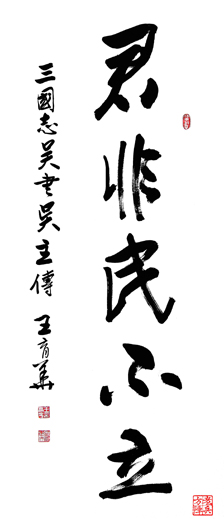 君非民不立
三國志吴書吴主傳 王育華